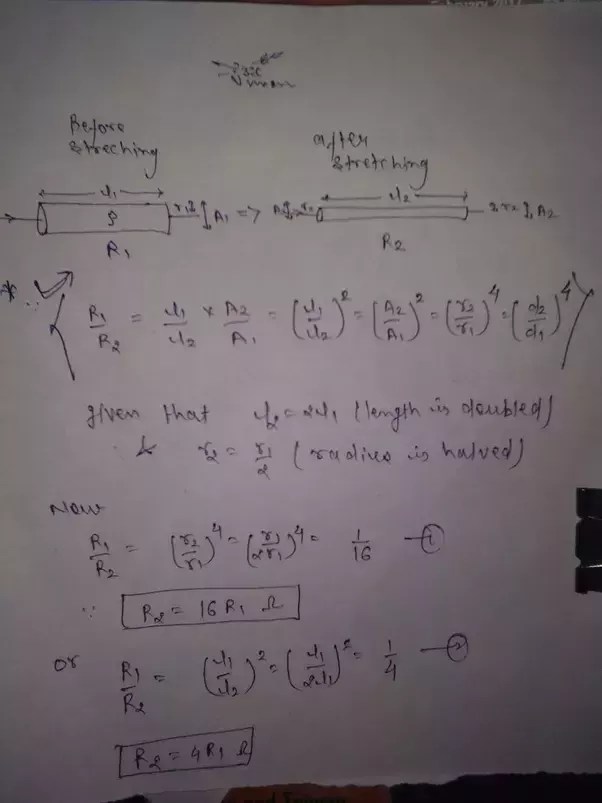 Before
Streching
after
Stretching
l1
r1 A1 =>
ρ
R1
l2
r2 A2
R2
* ∵ R1/R2 = l1/l2 × A2/A1 = (l1/l2)^2 = (A2/A1)^2 = (r2/r1)^4 = (d2/d1)^4
given that l2 = 2l1 (length is doubled)
& r2 = r1/2 (radius is halved)
Now
R1/R2 = (r2/r1)^4 = (r1/2r1)^4 = 1/16 —①
∵ R2 = 16 R1 Ω
or R1/R2 = (l1/l2)^2 = (l1/2l1)^2 = 1/4 —②
R2 = 4R1 Ω